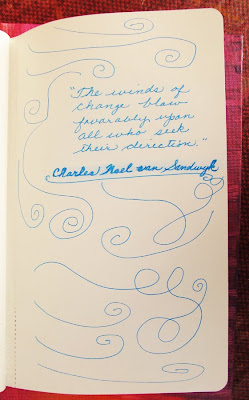 "The winds of
change blow
favorably upon
all who seek
their direction."
Charles Noel van Sandwyk